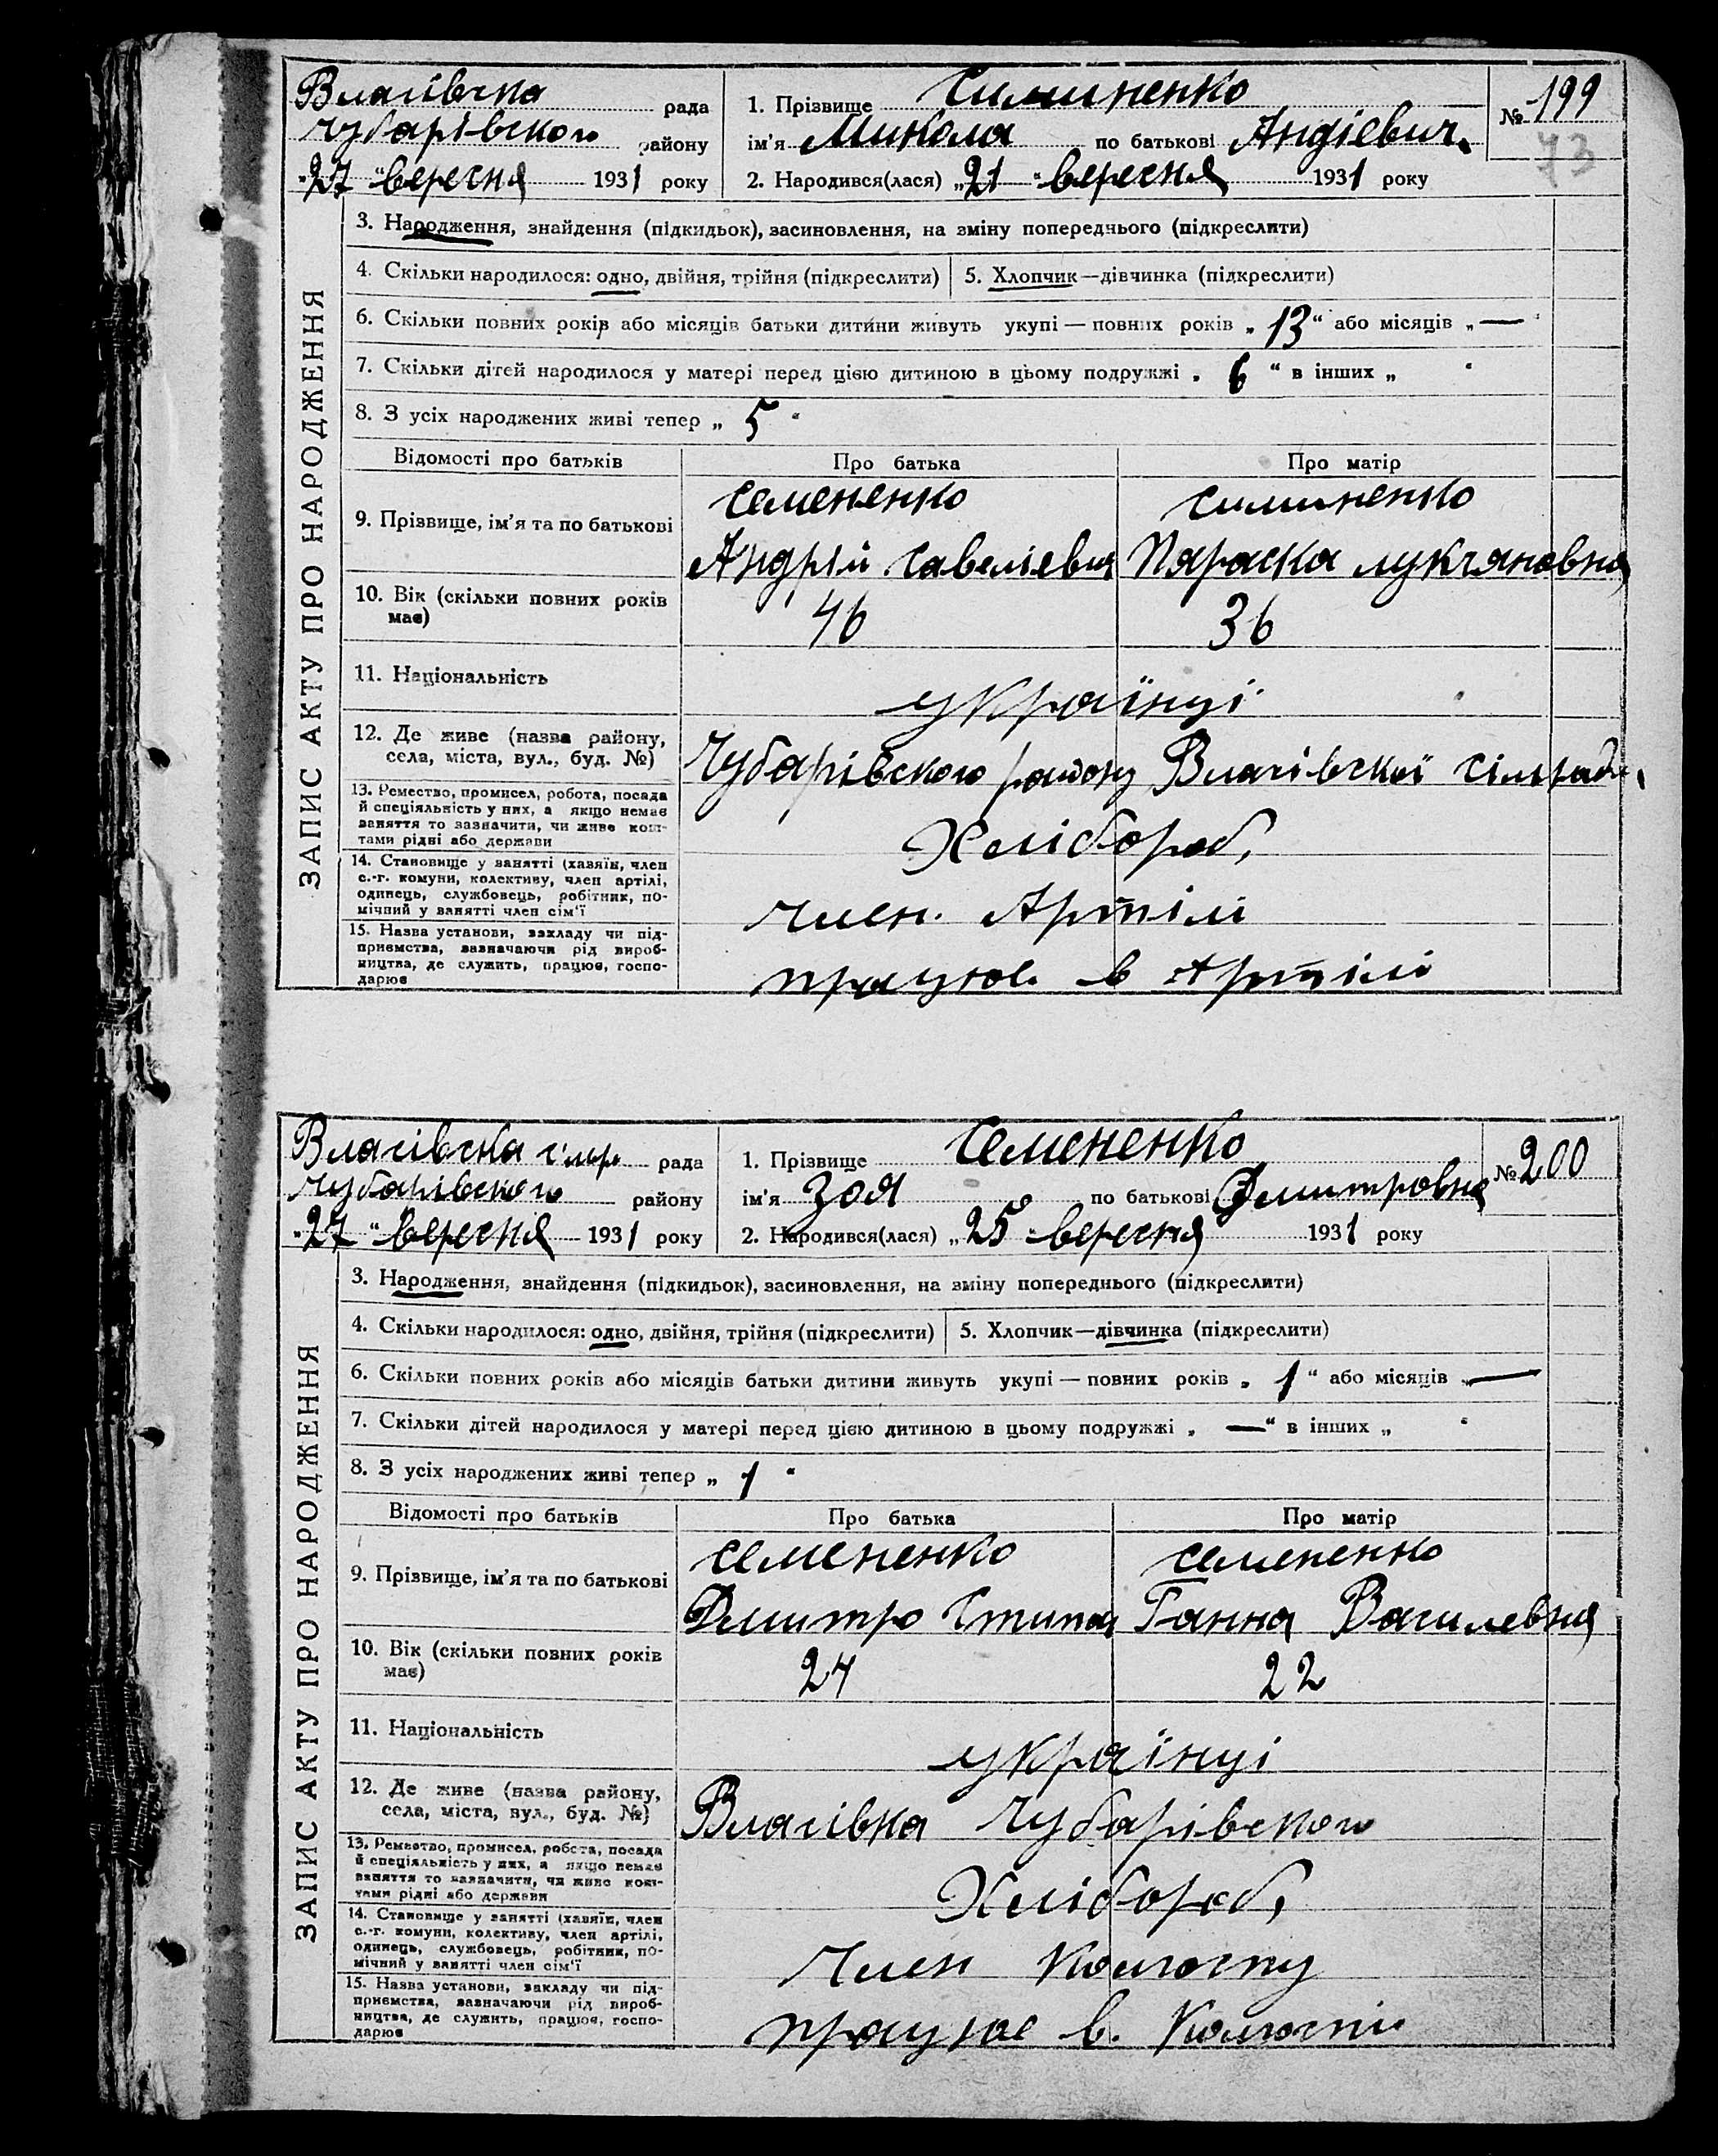 Власівска рада
Чубарівского району
"27" вересня 1931 року
1. Прізвище Симиненко
ім'я Микола по батькові Андіевич.
2. Народився(лася) „21" вересня 1931 року
№ 199
73
ЗАПИС АКТУ ПРО НАРОДЖЕННЯ
3. Народження, знайдення (підкидьок), засиновлення, на зміну попереднього (підкреслити)
4. Скільки народилося: одно, двійня, трійня (підкреслити) 5. Хлопчик—дівчинка (підкреслити)
6. Скільки повних років або місяців батьки дитини живуть укупі — повних років „ 13 " або місяців „ — "
7. Скільки дітей народилося у матері перед цією дитиною в цьому подружжі „ 6 " в інших „ "
8. З усіх народжених живі тепер „ 5 "
Відомості про батьків Про батька Про матір
9. Прізвище, ім'я та по батькові
Семененко
Андрій Савелієвич
Симиненко
Параска Лукчяновна
10. Вік (скільки повних років
має)
46 36
11. Національність
українці
12. Де живе (назва району,
села, міста, вул., буд. №)
Чубарівского району Власівскої сільради,
13. Ремество, промисел, робота, посада
й спеціяльність у них, а якщо немає
заняття то зазначити, чи живе кош-
тами рідні або держави
Хлібороб,
14. Становище у занятті (хазяїн, член
с.-г. комуни, колективу, член артілі,
одинець, службовець, робітник, по-
мічний у занятті член сім'ї
член. Артілі
15. Назва установи, закладу чи під-
приємства, зазначаючи рід вироб-
ництва, де служить, працює, госпо-
дарює
працює. в Артілі
Власівска с.м.р. рада
Чубарівского району
"27" вересня 1931 року
1. Прізвище Семененко
ім'я Зоя по батькові Дмитровна
2. Народився(лася) „25" вересня 1931 року
№ 200
ЗАПИС АКТУ ПРО НАРОДЖЕННЯ
3. Народження, знайдення (підкидьок), засиновлення, на зміну попереднього (підкреслити)
4. Скільки народилося: одно, двійня, трійня (підкреслити) 5. Хлопчик—дівчинка (підкреслити)
6. Скільки повних років або місяців батьки дитини живуть укупі — повних років „ 1 " або місяців „ —
7. Скільки дітей народилося у матері перед цією дитиною в цьому подружжі „ — " в інших „ "
8. З усіх народжених живі тепер „ 1 "
Відомості про батьків Про батька Про матір
9. Прізвище, ім'я та по батькові
Семененко
Дмитро
Семененко
Ганна Василевна
10. Вік (скільки повних років
має)
24 22
11. Національність
українці
12. Де живе (назва району,
села, міста, вул., буд. №)
Власівка Чубарівского
13. Ремество, промисел, робота, посада
й спеціяльність у них, а якщо немає
заняття то зазначити, чи живе кош-
тами рідні або держави
Хлібороб,
14. Становище у занятті (хазяїн, член
с.-г. комуни, колективу, член артілі,
одинець, службовець, робітник, по-
мічний у занятті член сім'ї
Член колгоспу
15. Назва установи, закладу чи під-
приємства, зазначаючи рід вироб-
ництва, де служить, працює, госпо-
дарює
працює в. Колгоспі